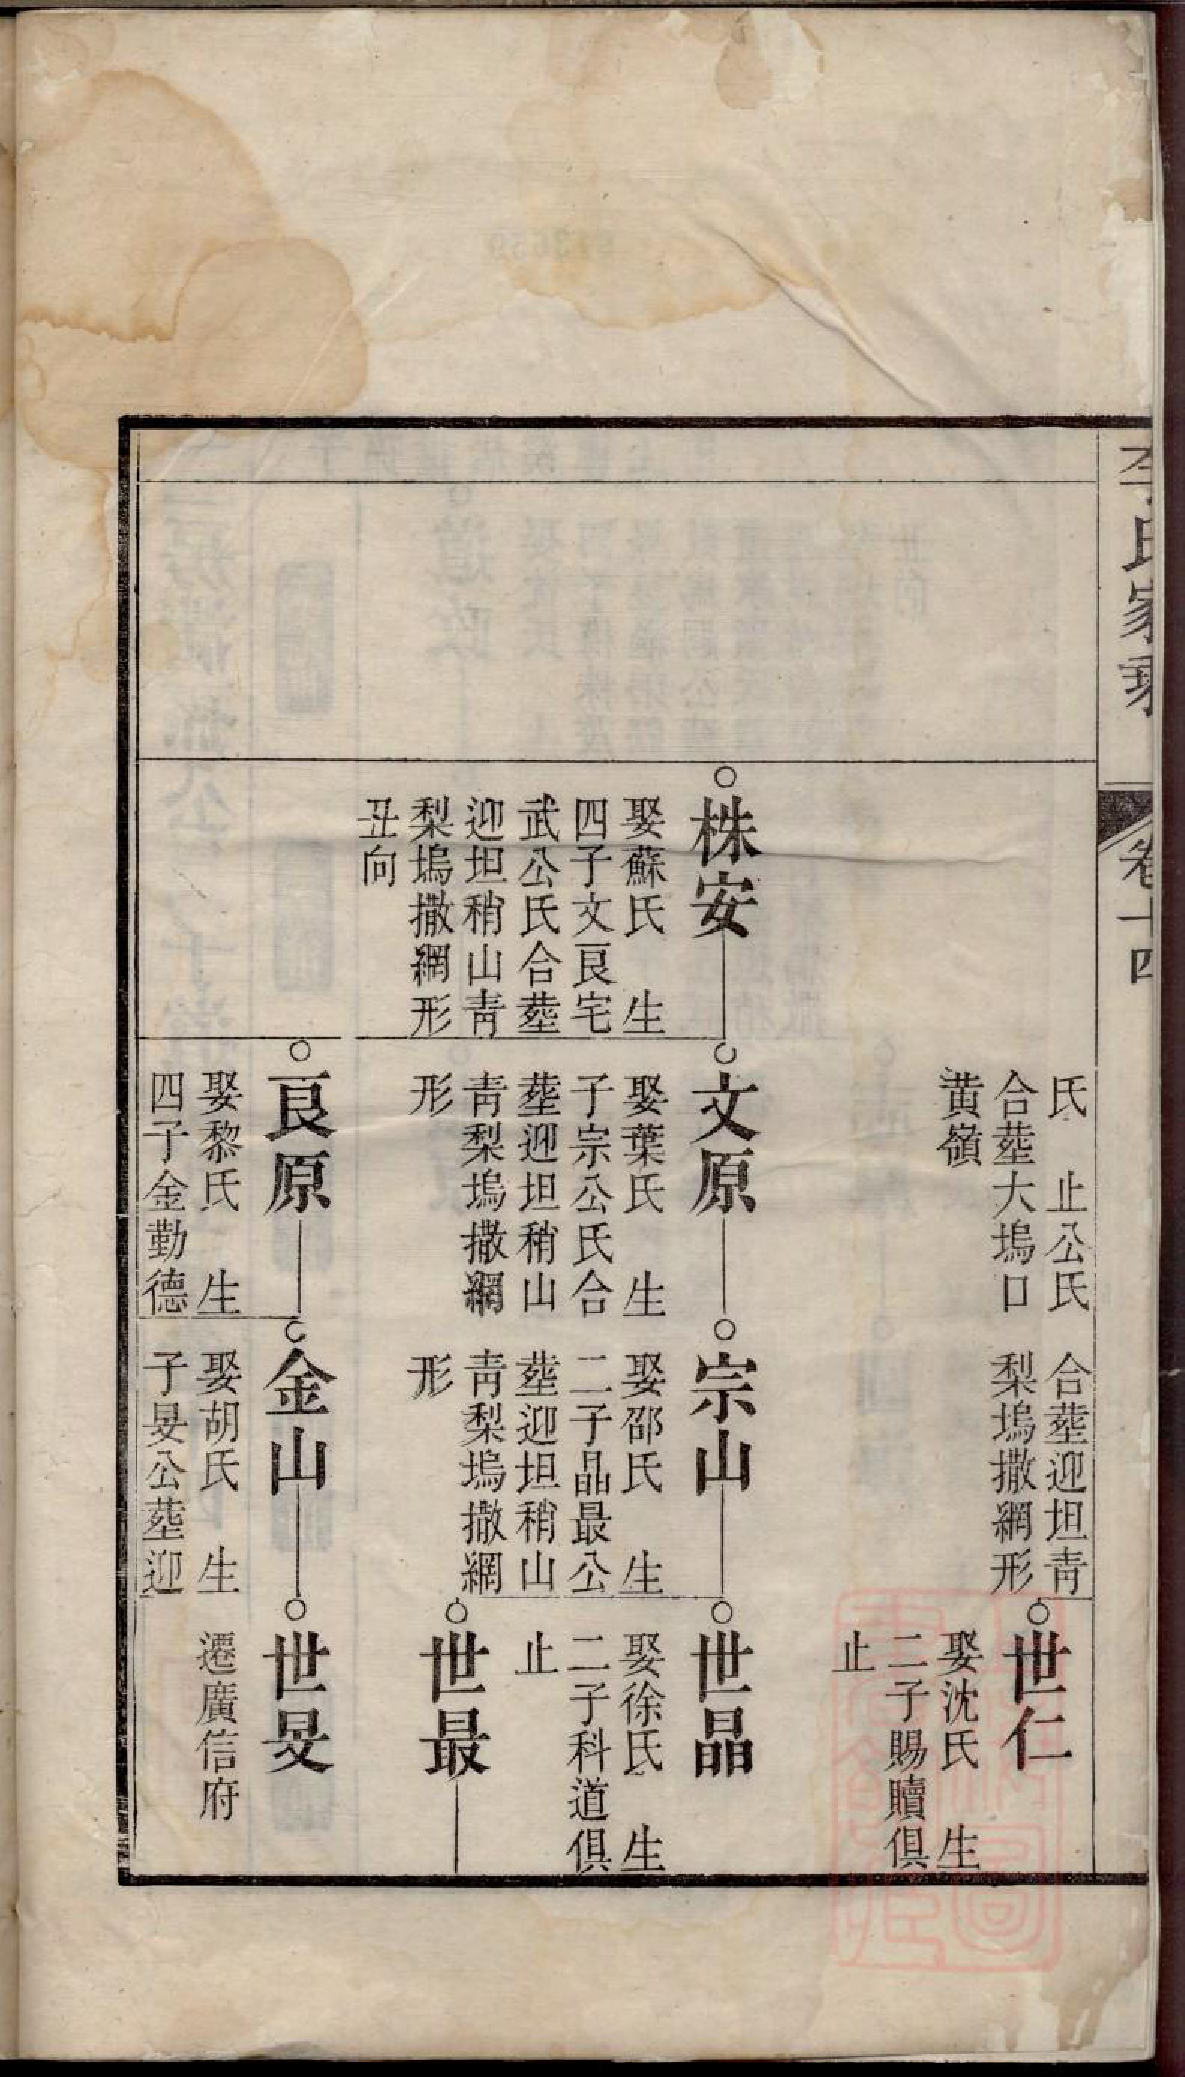 李氏家乘
卷十四
株安
娶蘇氏　生
四子文良宅
武公氏合塟
迎坦稍山靑
梨塢撒網形
丑向
氏　止公氏
合塟大塢口
黄嶺
文原
娶葉氏　生
子宗公氏合
塟迎坦稍山
靑梨塢撒網
形
良原
娶黎氏　生
四子金勤德
合塟迎坦靑
梨塢撒網形
宗山
娶邵氏　生
二子晶最公
塟迎坦稍山
靑梨塢撒網
形
金山
娶胡氏　生
子旻公塟迎
世仁
娶沈氏　生
二子賜贖俱
止
世晶
娶徐氏　生
二子科道俱
止
世最
世旻
遷廣信府